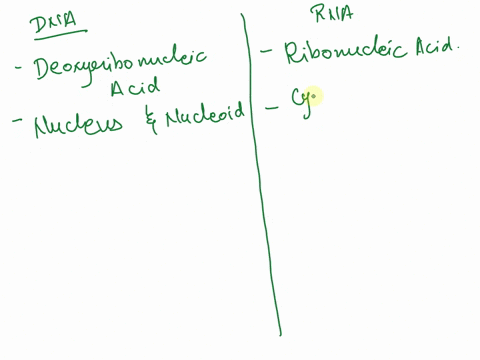 DNA
RNA
- Deoxyribonucleic
Acid
- Ribonucleic Acid.
- Nucleus & Nucleoid
- Cy